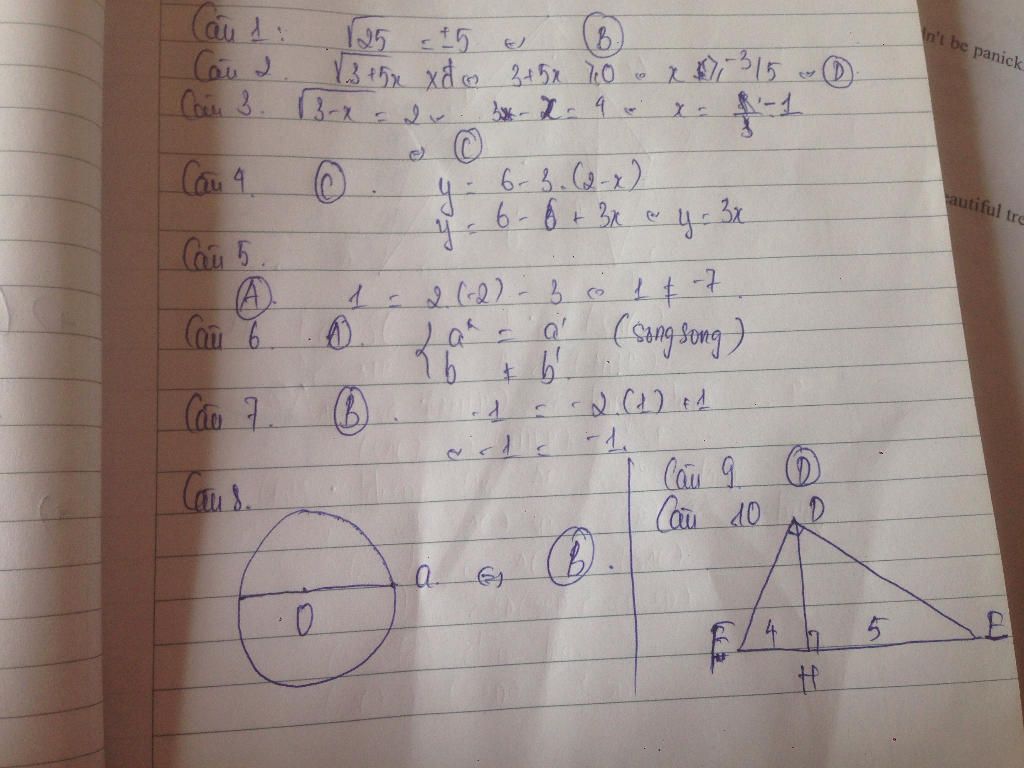 Câu 1: √25 = ±5 ⇔ Ⓑ
Câu 2. √3+5x xđ ⇔ 3+5x ≥0 ⇔ x ≥ -3/5 ⇔ Ⓓ
Câu 3. √3-x = 2 ⇔ 3 - x = 4 ⇔ x = -1
⇔ Ⓒ
Câu 4. Ⓒ. y = 6 - 3.(2-x)
y = 6 - 6 + 3x ⇔ y = 3x
Câu 5.
Ⓐ. 1 = 2.(-2) - 3 ⇔ 1 ≠ -7.
Câu 6. { a = a' (song song)
b ≠ b'
Câu 7. Ⓑ. -1 = -2.(1) +1
⇔ -1 = -1.
Câu 8.
O a ⇔ Ⓑ.
Câu 9. Ⓓ
Câu 10 D
F 4 5 E
H
n't be panick
autiful tre